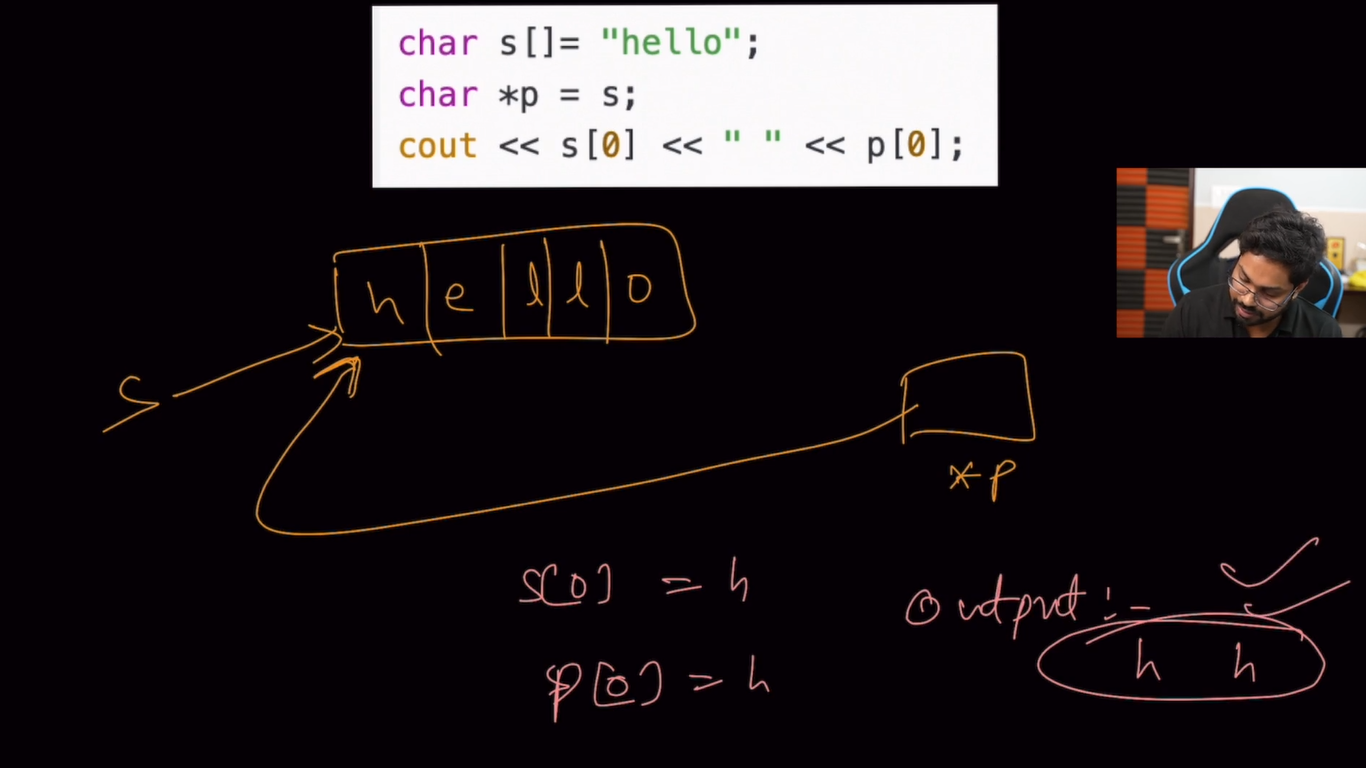 char s[]= "hello";
char *p = s;
cout << s[0] << " " << p[0];
h e l l o
S
*p
s[0] = h
Output:-
h h
p[0] = h